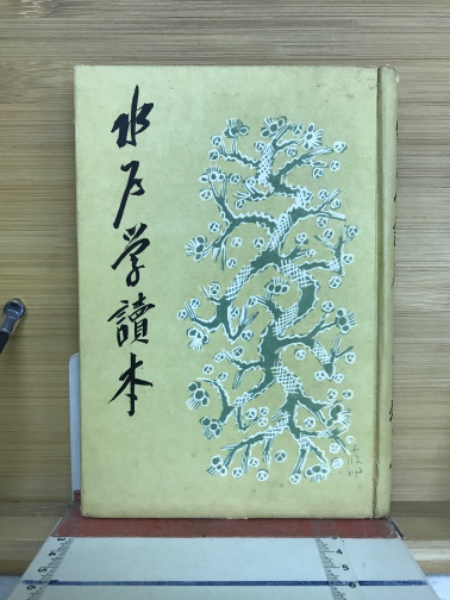 水戸学讀本